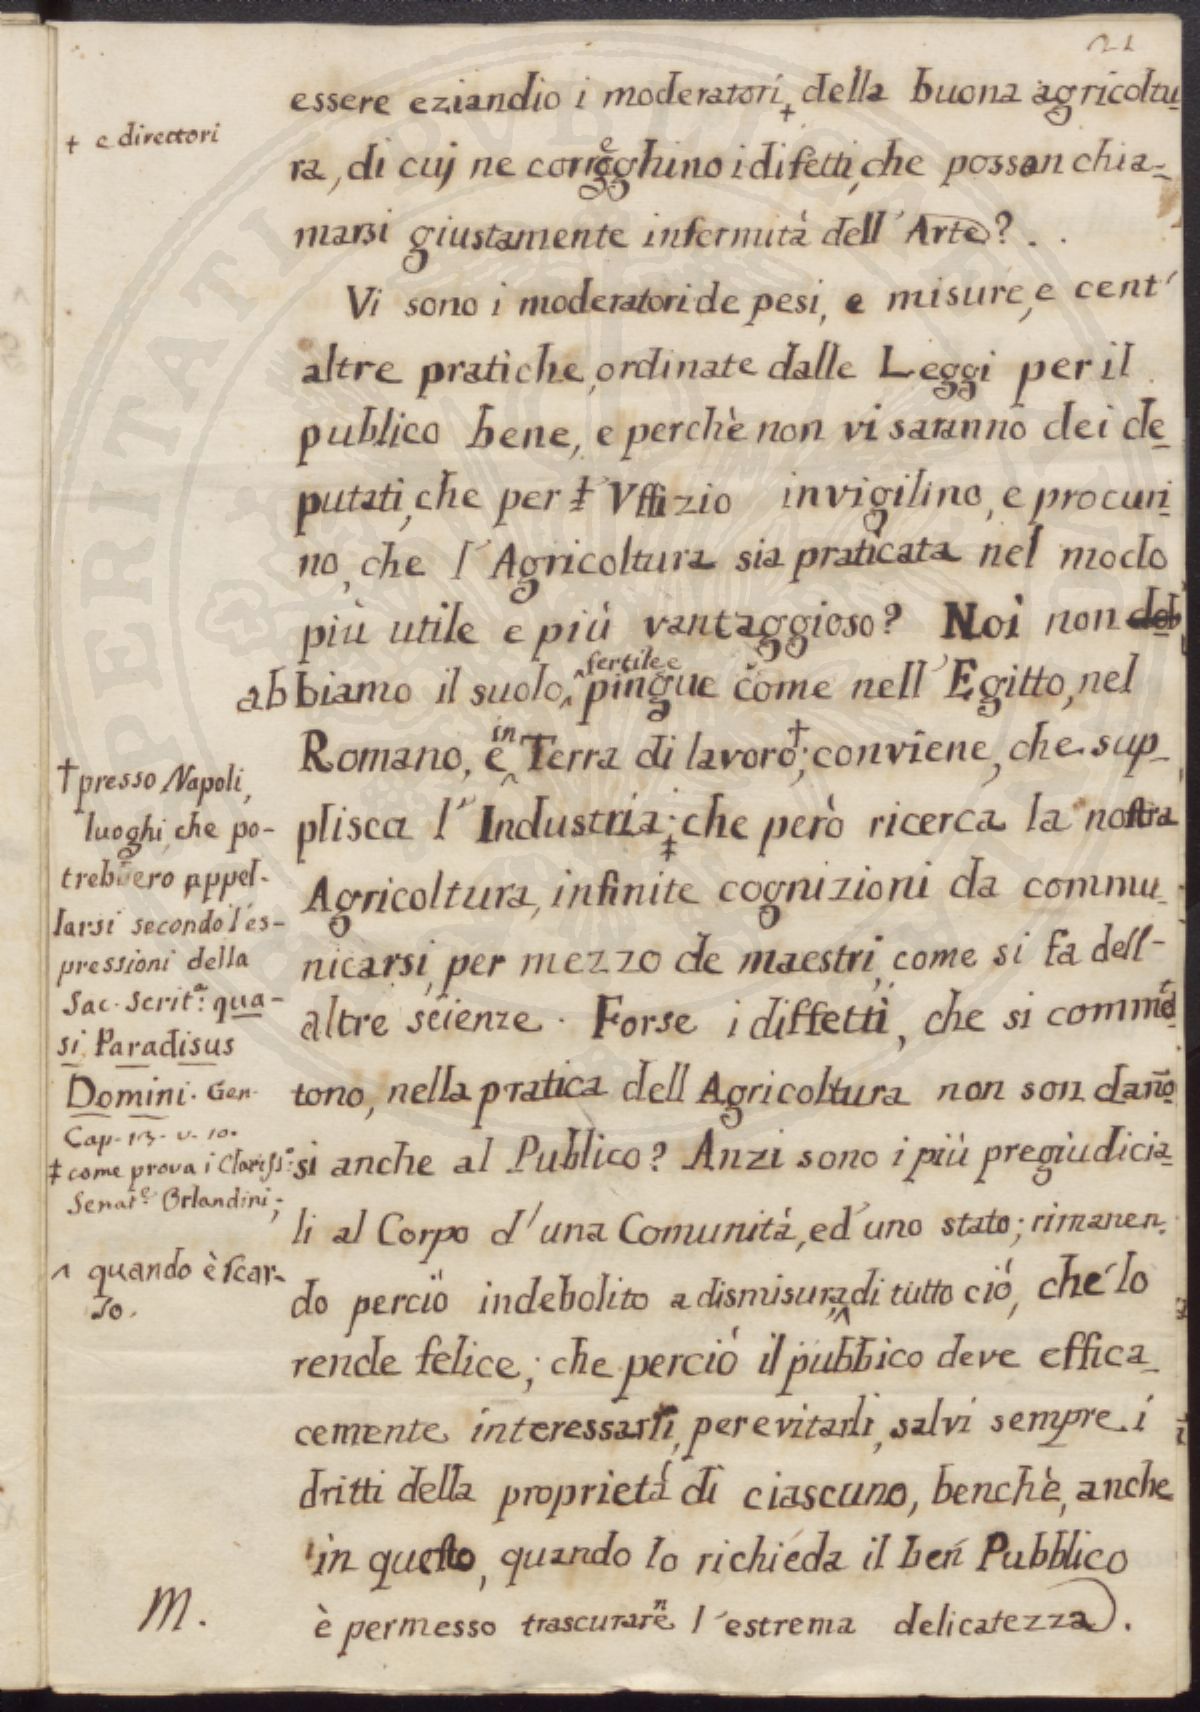 21
essere eziandio i moderatori + della buona agricoltu-
+ e direttori
ra, di cuj ne corregghino i difetti, che posson chia-
marsi giustamente infermità dell'Arte? . .
Vi sono i moderatori de pesi, e misure, e cent'
altre pratiche, ordinate dalle Leggi per il
publico bene, e perchè non vi saranno dei de-
putati, che per Uffizio invigilino, e procuri-
no, che l'Agricoltura sia praticata nel modo
più utile e più vantaggioso? Noi non dob
abbiamo il suolo, ^ fertile e pingue come nell'Egitto, nel
Romano, e ^ in Terra di lavoro †; conviene, che sup-
plisca l'Industria ‡; che però ricerca la nostra
Agricoltura, infinite cognizioni da commu-
nicarsi, per mezzo de maestri, come si fa dell-
altre scienze. Forse i diffetti, che si commet-
tono, nella pratica dell Agricoltura non son dan̄o-
si anche al Publico? Anzi sono i più pregiudicia-
li al Corpo d'una Comunità, ed'uno stato; rimanen-
do perciò indebolito a dismisura, ^ di tutto ciò, che lo
rende felice; che perciò il pubbico deve effica-
cemente interessarsi, per evitarli, salvi sempre i
dritti della proprietà di ciascuno, benchè, anche
in questo, quando lo richieda il ben Pubblico
è permesso trascurarne l'estrema delicatezza).
† presso Napoli,
luoghi, che po-
trebbero appel-
larsi secondo l'es-
pressioni della
Sac. Scrit.a: qua-
si Paradisus
Domini. Gen.
Cap. 13. v. 10.
‡ come prova i Clariss.o
Senat.e Orlandini;
^ quando è scar-
so.
M.